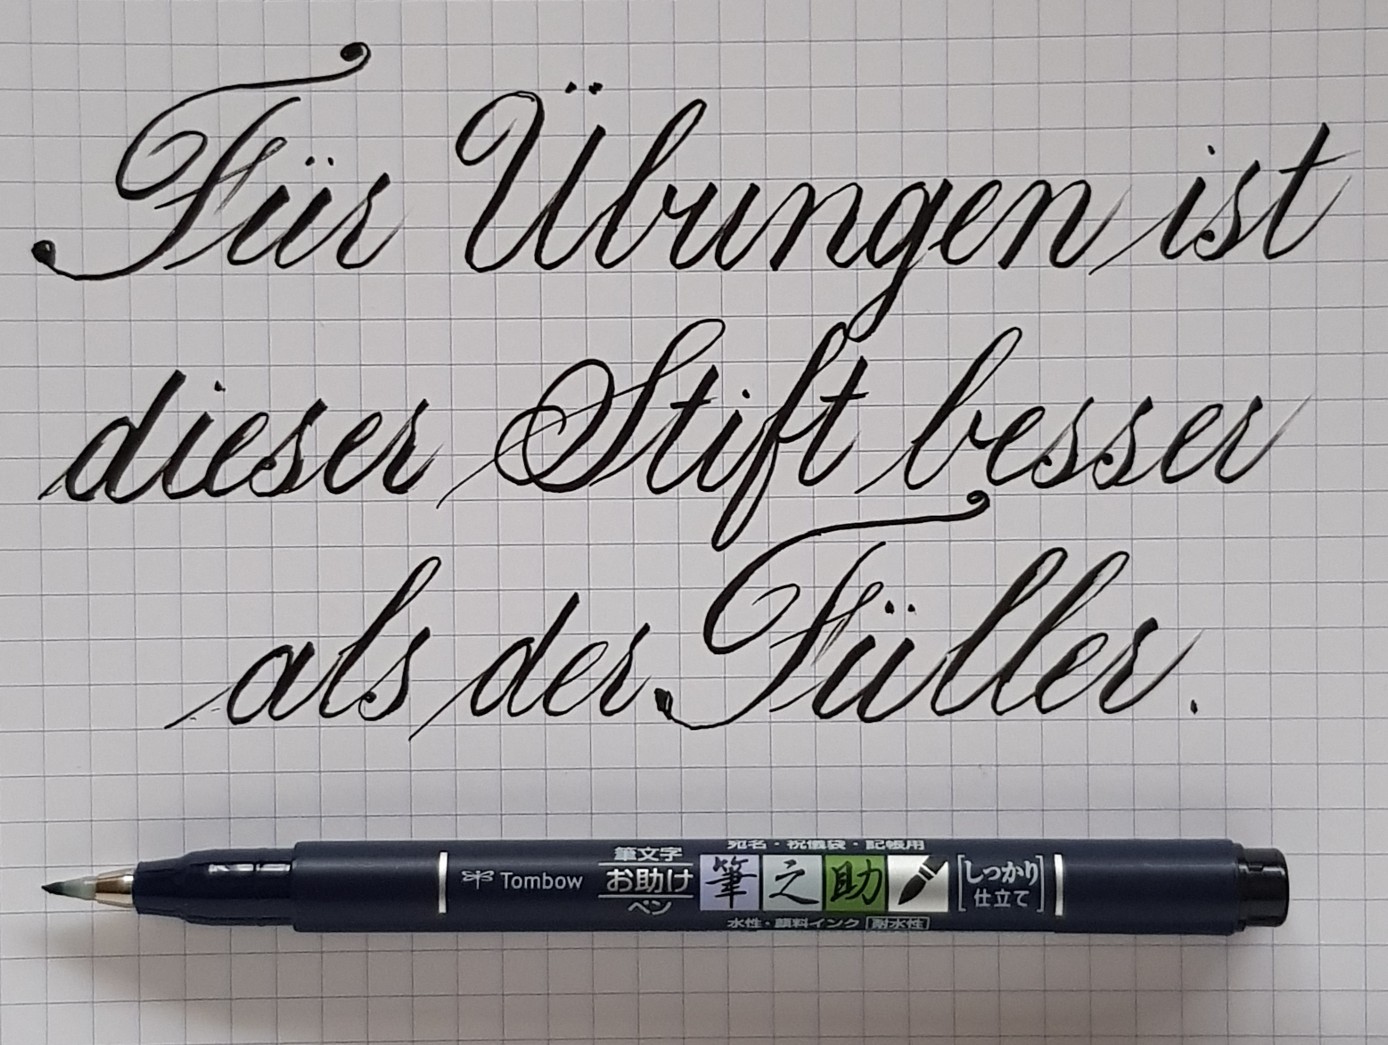 Für Übungen ist
dieser Stift besser
als der Füller.
Tombow
筆文字
お助け
ペン
宛名・祝儀袋・記帳用
筆之助
水性・顔料インク［耐水性］
しっかり
仕立て